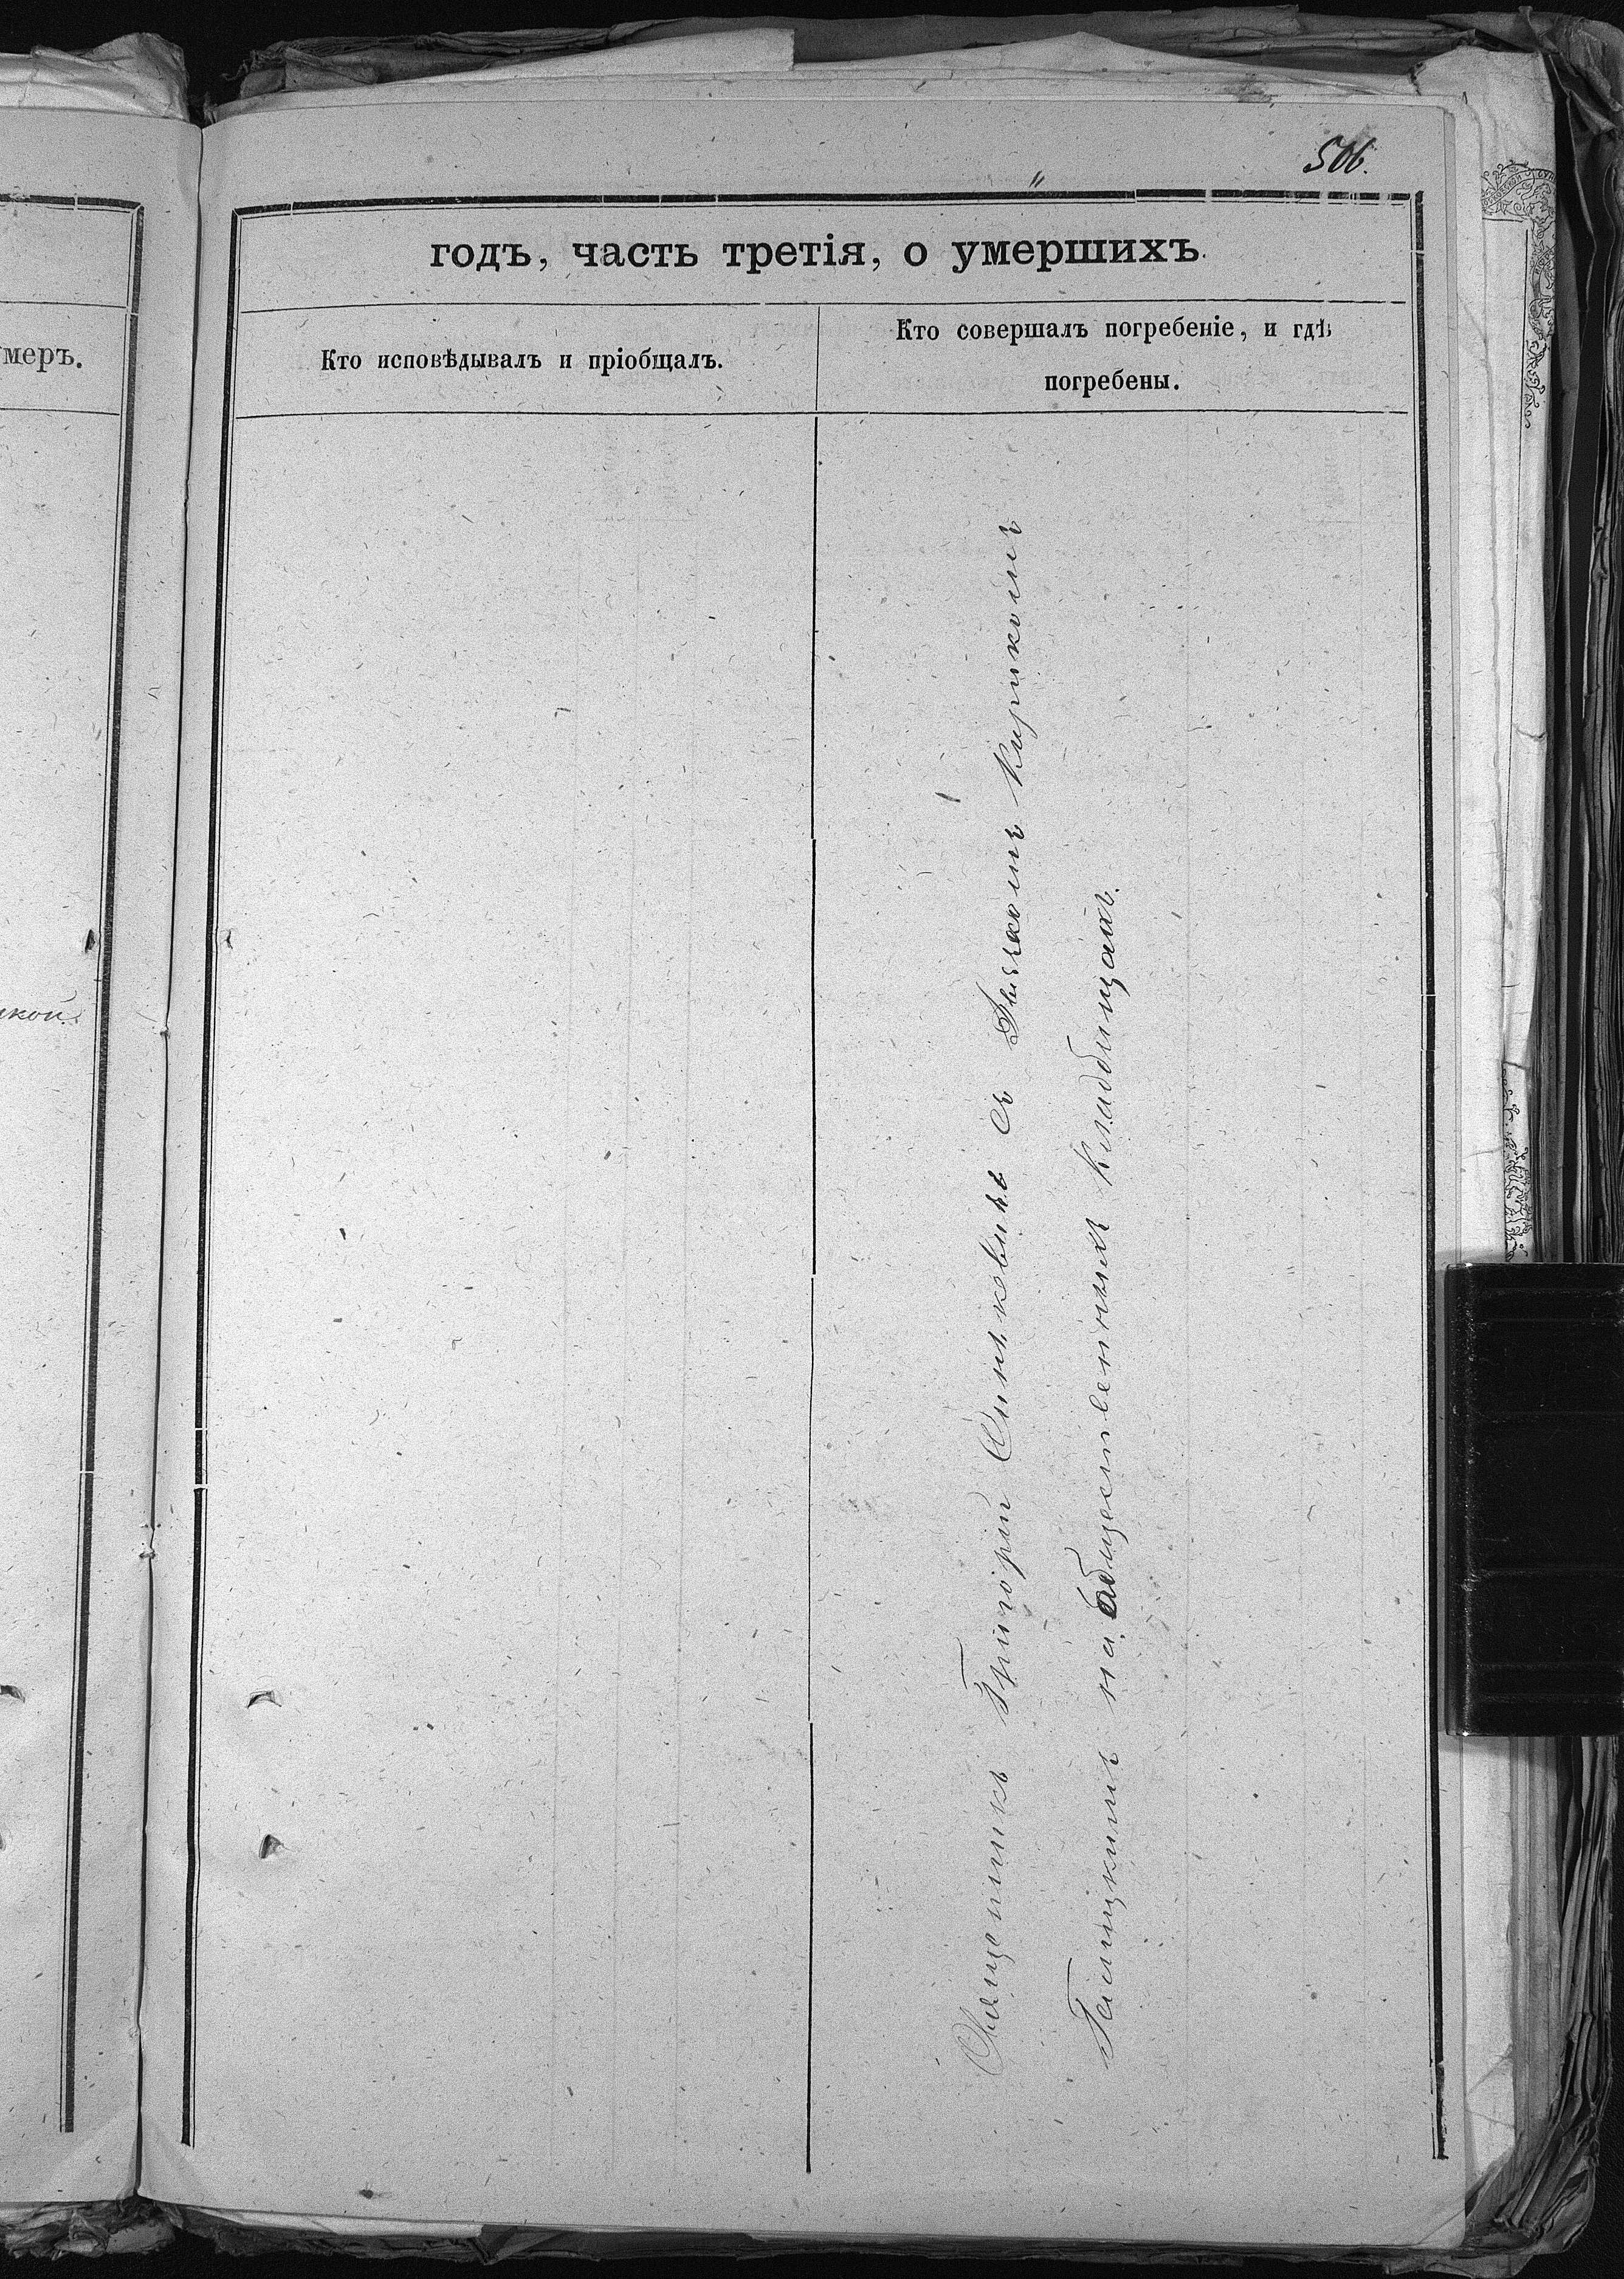 506.
годъ, часть третія, о умершихъ.
умеръ.
Кто исповѣдывалъ и пріобщалъ.
Кто совершалъ погребеніе, и гдѣ
погребены.
Священникъ Григорій Синькевичъ съ Дьякомъ Кирикомъ
Галицкимъ на общественныхъ кладбищахъ.